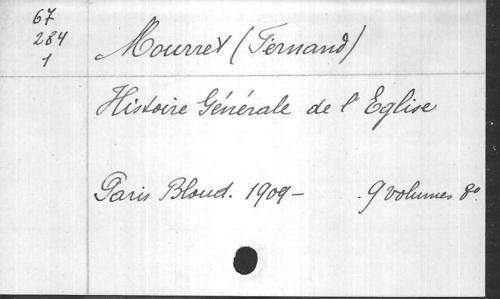 67
284
1
Mourret (Fernand)
Histoire Générale de l'Eglise
Paris Bloud. 1909- 9 volumes 8°